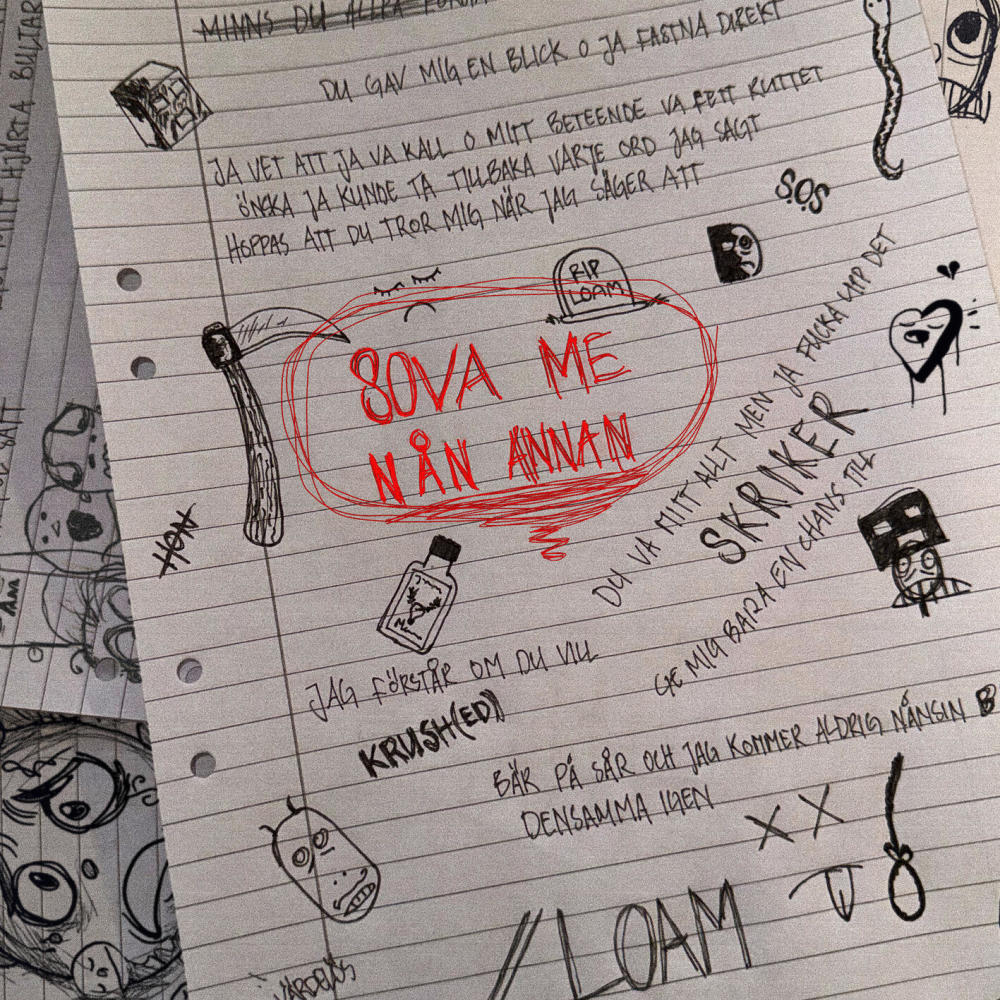 MINNS DU ALLRA FÖRSTA
DU GAV MIG EN BLICK O JA FASTNA DIREKT
JA VET ATT JA VA KALL O MITT BETEENDE VA FETT RUTTET
ÖNSKA JA KUNDE TA TILLBAKA VARJE ORD JAG SAGT
HOPPAS ATT DU TROR MIG NÄR JAG SÄGER ATT
S.O.S
RIP
LOAM
SOVA ME
NÅN ANNAN
DU VA MITT ALLT MEN JA FUCKA UPP DET
SKRIKER
GE MIG BARA EN CHANS TILL
HON
JAG FÖRSTÅR OM DU VILL
KRUSH(ED)
BÄR PÅ SÅR OCH JAG KOMMER ALDRIG NÅNSIN B
DENSAMMA IGEN
//LOAM
VÄRDELÖS
HJÄRTA BULTAR